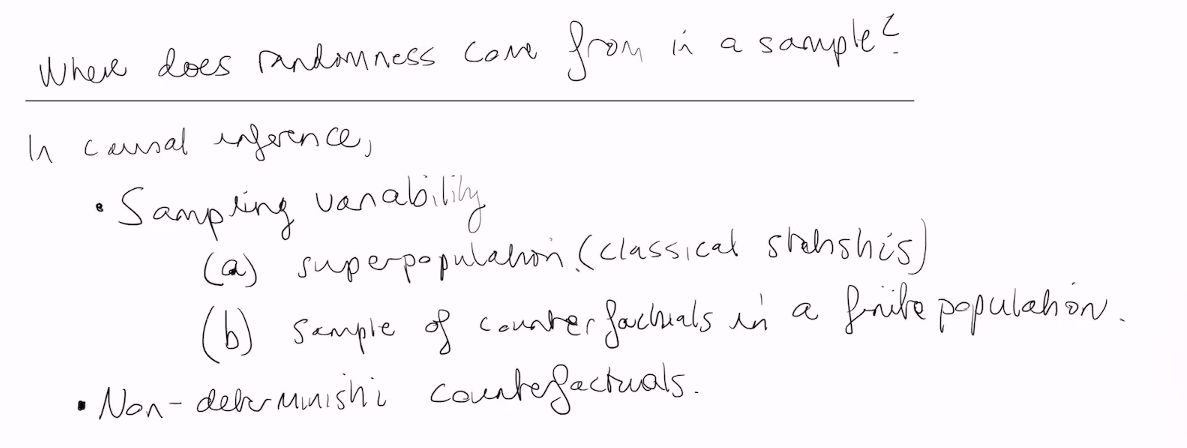 Where does randomness come from in a sample?
In causal inference,
• Sampling variability
(a) superpopulation. (classical statistics)
(b) sample of counterfactuals in a finite population.
• Non-deterministic counterfactuals.